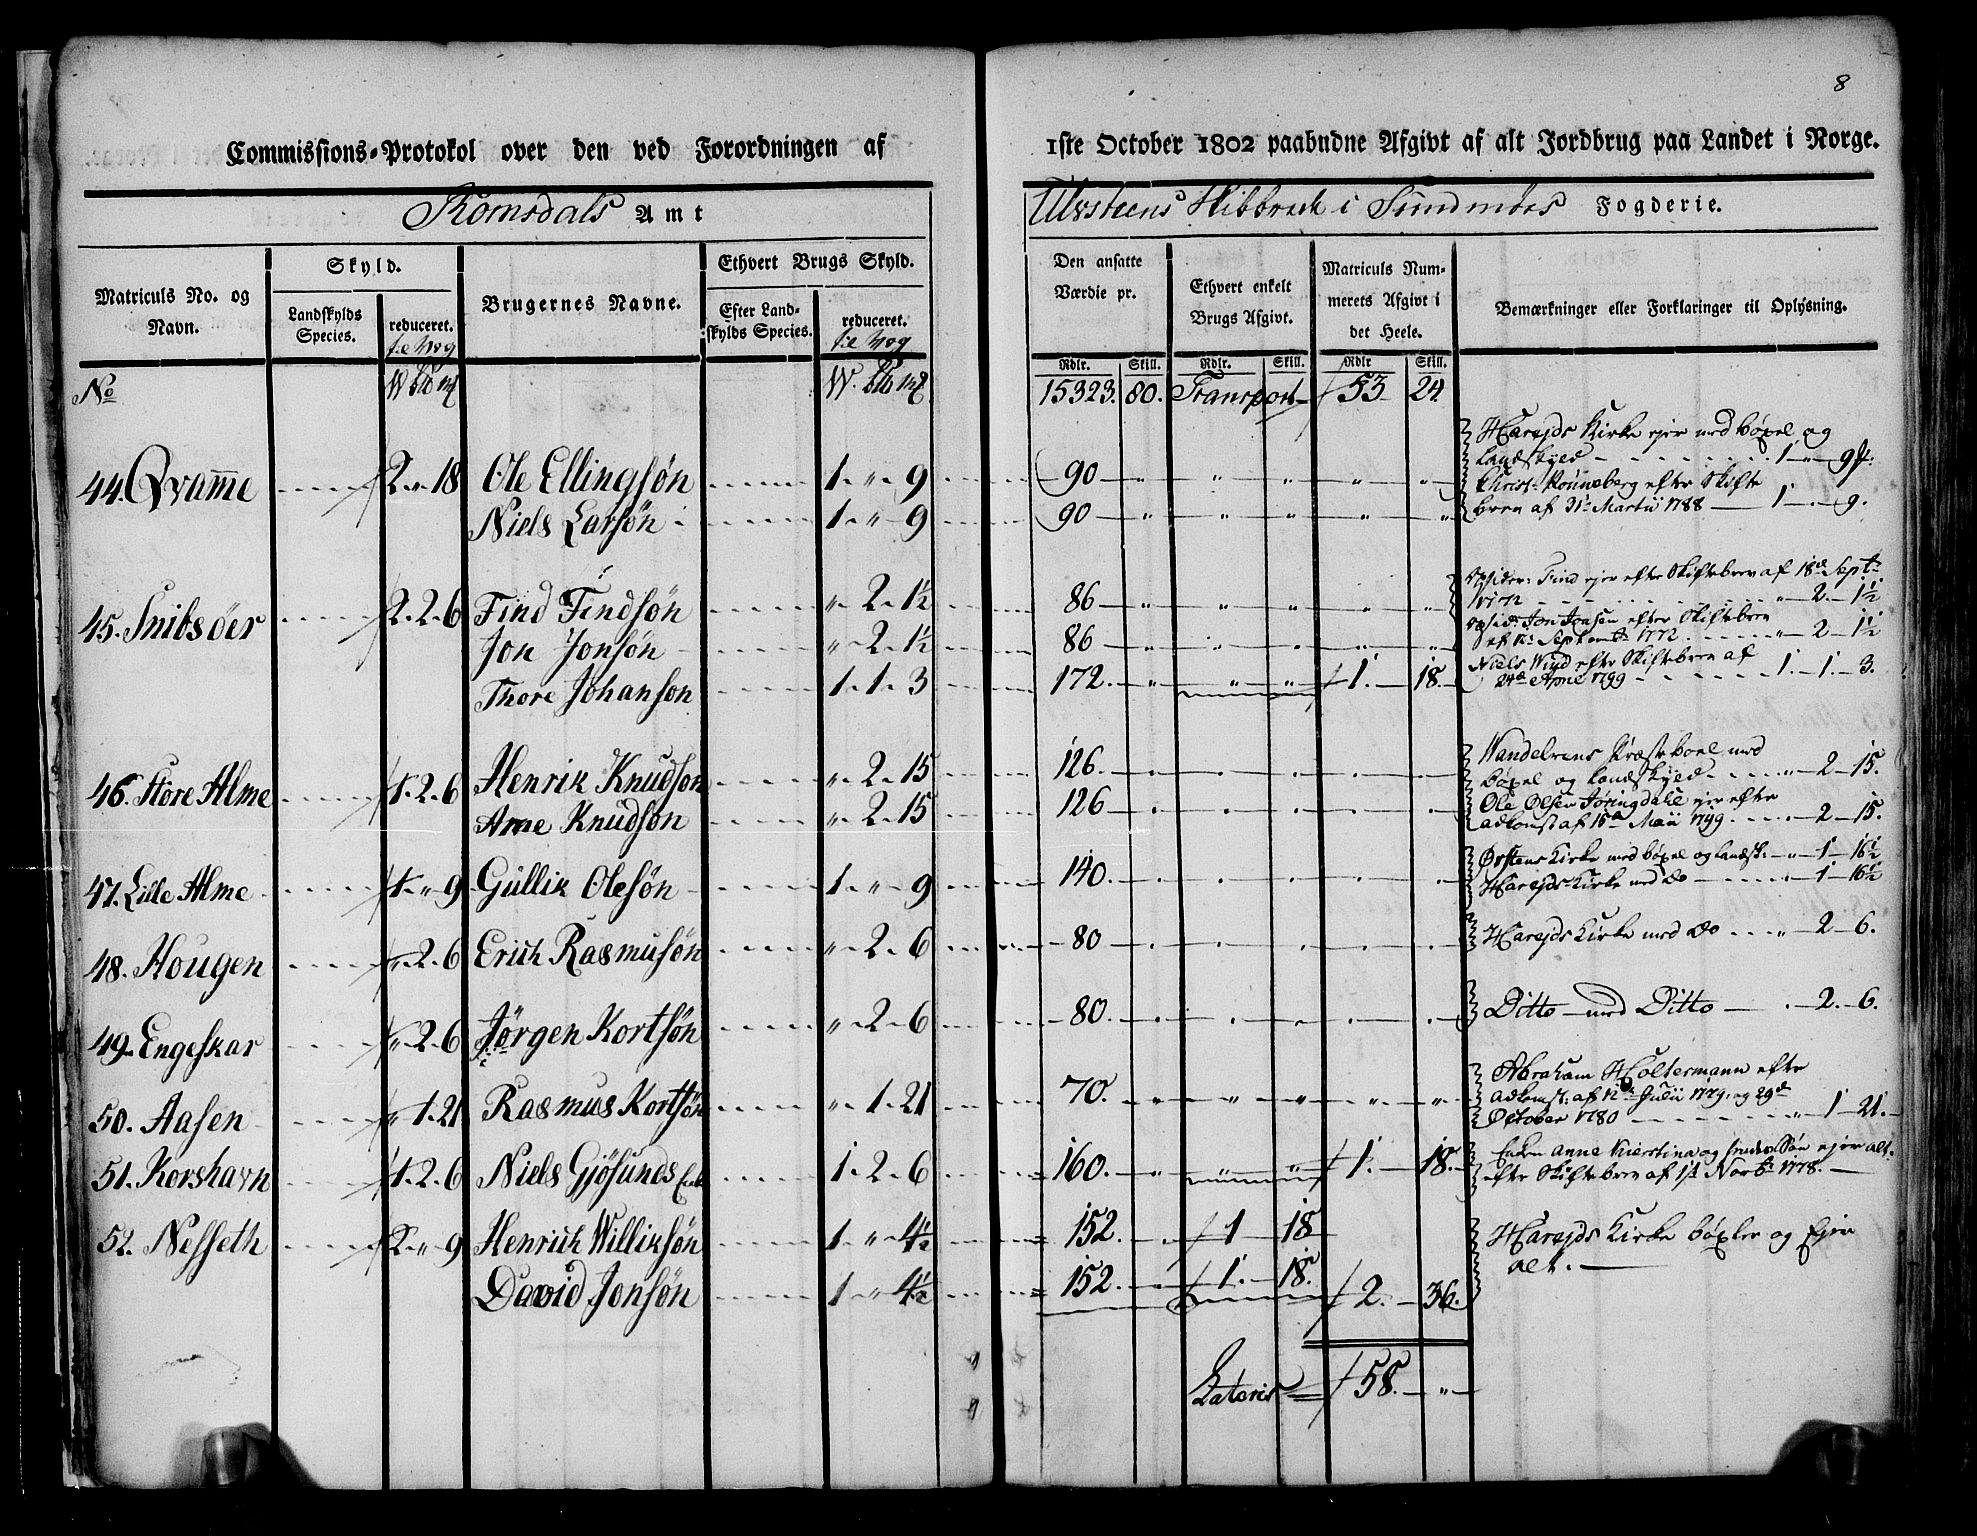 8
Commissions-Protokol over den ved Forordningen af 1ste October 1802 paabudne Afgivt af alt Jordbrug paa Landet i Norge.
Romsdals Amt
Ulvsteens Skibbrede i Sundmøes Fogderie.
Matriculs No. og Navn.
Skyld.
Landskylds Species.
reduceret. til Vog
Brugernes Navne.
Ethvert Brugs Skyld.
Efter Landskylds Species.
reduceret. til Vog
Den ansatte Værdie pr.
Ethvert enkelt Brugs Afgivt.
Matriculs Nummerets Afgivt i det Heele.
Bemærkninger eller Forklaringer til Oplysning.
Rdlr. Skill. Rdlr. Skill. Rdlr Skill.
No W W. 15323. 80. Transport 53 24.
Harejds Kirke ejer med bøxel og
44. Qvamme 2 " 18 Ole Ellingsøn 1 " 9 90 " " " " " Landskyld 1 " 9
Christ. Rønneberg efter Skifte
Niels Larsøn 1 " 9 90 " " " " " brev af 31 Martii 1788 1 . 9.
Find ejer efter Skiftebrev af 18de Sept.
45. Snibsøer 2. 2. 6 Find Findsøn " 2. 1½ 86 " " " " " " 2. 1½
Jon Jonsen efter Skiftebrev
Jon Jonsøn " 2. 1½ 86 " " " " " af 12 Septemb. 1772 " 2 1½
Niels Wiyd efter Skiftebrev af
Thore Johanson 1. 1. 3 172. " " " 1. 18. 24de April 1799 1. 1. 3.
Wandelvens Præsteboel med
46. Store Alme 1. 2. 6 Henrik Knudson " 2. 15 126. bøxel og Landskyld " 2 15.
Ole Olsen Jøringdahl ejer efter
Arne Knudson " 2. 15 126 adkomst af 15de Maii 1799. 2 15.
Ørstens Kirke med bøxel og landsk: " 1 16½
47. Lille Alme 1. " 9 Gullik Olesøn 1. " 9 140. Harejds Kirke med Do " 1 16½
48. Hougen " 2. 6 Erich Rasmusøn " 2. 6 80 Harejds Kirke med Do " 2 6.
49. Engeskar " 2. 6 Jørgen Kortsøn " 2. 6 80. Ditto med Ditto . 2. 6.
Abraham Holtermann efter
50. Aasen " 1. 21 Rasmus Kortsøn " 1. 21 70. " " " " " adkomst. af 12te Julii 1779, og 29de
October 1780 " 1 21.
Enken Anne Kierstina og hendes Søn ejer alt.
51. Korshavn 1. 2. 6 Niels Gjøsunds Enke 1. 2. 6 160. " " " 1. 18. efter Skiftebrev af 1ste Novbr 1778.
52. Nesseth 2 " 9 Henrich Williksøn 1 " 4½ 152. 1 18 Harejds Kirke bøxler og Ejer
alt.
David Jonsøn 1 " 4½ 152. 1. 18. 2. 36.
Lateris 58. "